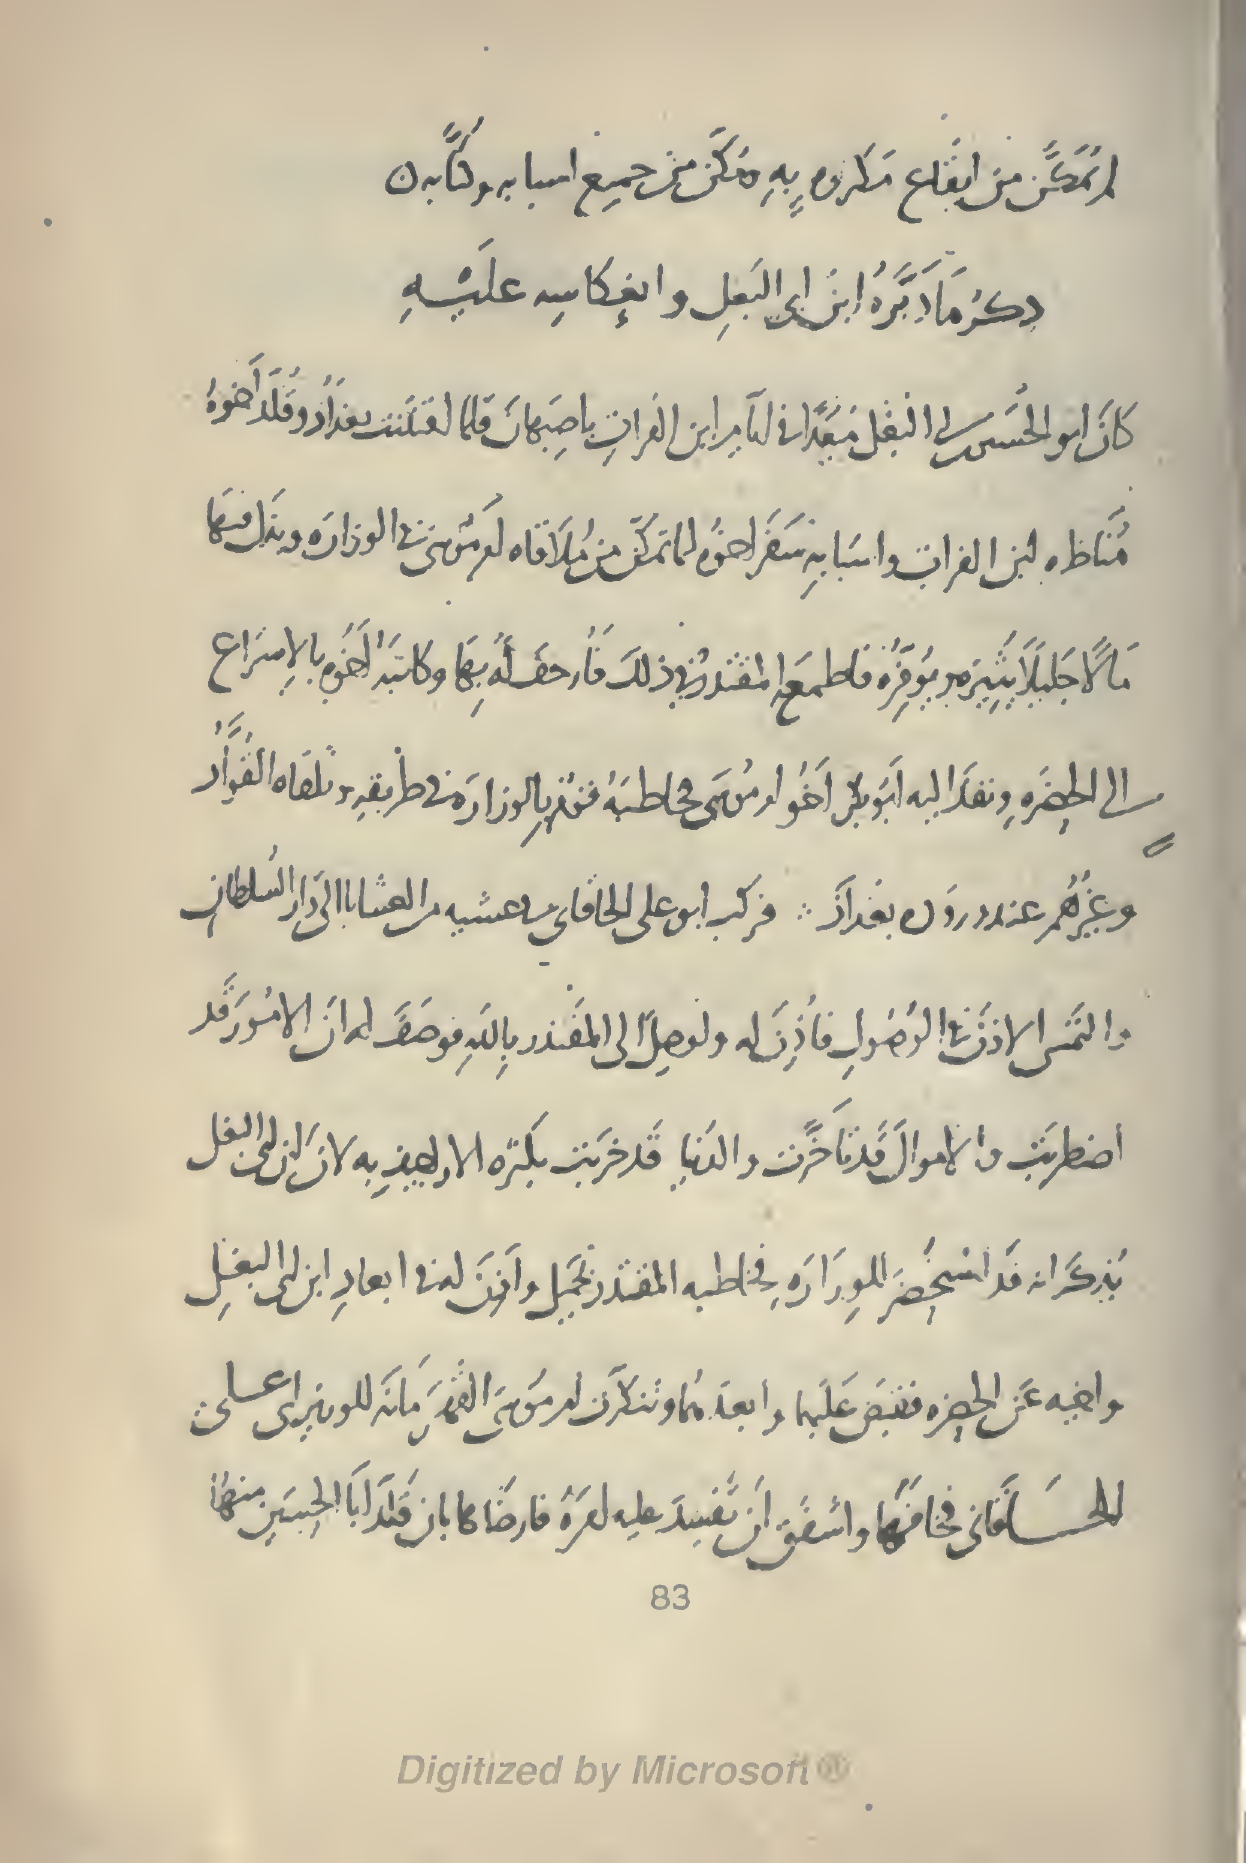 لم تمكن من ايقاع مكروه به ومكن من جميع اسبابه وكتابه ن
ذكر ما دبره ابن ابي البغل وانعكاسه عليه
كان ابو الحسين بن ابي البغل مبعدا في ايام ابن الفرات باصبهان فلما بغداد وقلد اخوه
مناظره ابن الفرات واسبابه سفر اخوه لما تمكن من ملاقاه ام موسى في الوزاره وبذل فيها
مالا جليلا يثيره ويوفره فاطمعه المقتدر في ذلك فارجف له بها وكاتبه اخوه بالاسراع
الى الحضره ونفذ اليه ابو بكر اخو ام موسى بالوزاره في طريقه وتلقاه القواد
وغيرهم عند وروده بغداذ ∴ فركب ابو على الخاقاني في عشيه من العشايا الى دار السلطان
والتمس الاذن في الوصول فاذن له ووصل الى المقتدر بالله فوصف له ان الامور قد
اضطربت والاموال قد تاخرت والدنيا قد خربت بكثره الاراجيف به لان ابن ابي البغل
يذكر انه قد استحضر للوزاره فخاطبه المقتدر بجميل واذن له في ابعاد ابن ابي البغل
واخيه عن الحضره فقبض عليهما وابعدهما وتنكرت ام موسى القهرمانه للوزير ابي على
الخاقاني فخافها واشفق ان تفسد عليه امره فارضاها بان قلد ابا الحسين منهما
83
Digitized by Microsoft ®